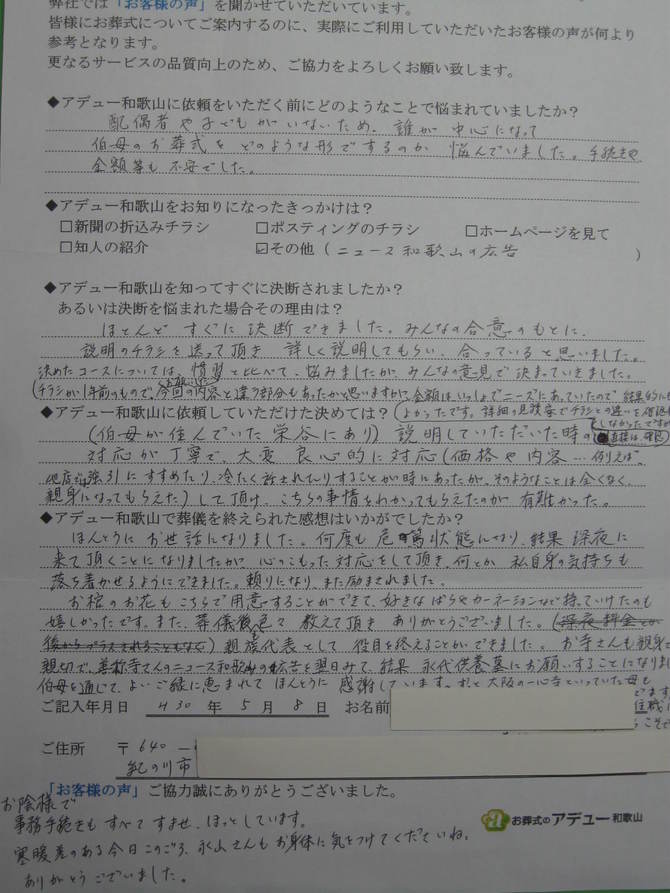 弊社では「お客様の声」を聞かせていただいています。
皆様にお葬式についてご案内するのに、実際にご利用していただいたお客様の声が何より
参考となります。
更なるサービスの品質向上のため、ご協力をよろしくお願い致します。
◆アデュー和歌山に依頼をいただく前にどのようなことで悩まれていましたか？
配偶者や子どもがいないため、誰が中心になって
伯母のお葬式をどのような形でするのか悩んでいました。手続きや
金額等も不安でした。
◆アデュー和歌山をお知りになったきっかけは？
□新聞の折込みチラシ □ポスティングのチラシ □ホームページを見て
□知人の紹介 ☑その他（ニュース和歌山の広告 ）
◆アデュー和歌山を知ってすぐに決断されましたか？
あるいは決断を悩まれた場合その理由は？
ほとんどすぐに決断できました。みんなの合意のもとに、
説明のチラシを送って頂き詳しく説明してもらい、合っていると思いました。
決めたコースについては、慣習と比べて、悩みましたが、みんなの意見で決まっていきました。
(チラシが1年前のもので、今回の内容と違う部分もあったかと思いますが、金額はいっしょでニーズにあっていたので結果的には
◆アデュー和歌山に依頼していただけた決めては？ (よかったです。詳細の見積書でチラシとの違いを確認
しなかったですが
(伯母が住んでいた栄谷にあり) 説明していただいた時の
対応が丁寧で、大変良心的に対応(価格や内容…例えば、
他店では強引にすすめたり、冷たく許されたりすることが時にあったが、そのようなことは全くなく、
親身になってもらえた)して頂け、こちらの事情をわかってもらえたのが有難かった。
◆アデュー和歌山で葬儀を終えられた感想はいかがでしたか？
ほんとうにお世話になりました。何度も危篤状態になり、結果深夜に
来て頂くことになりましたが、心のこもった対応をして頂き、何とか私自身の気持ちも
落ち着かせるようにできました。頼りになり、また励まされました。
お棺のお花もこちらで用意することができて、好きなばらやカーネーションなど持っていけたのも
嬉しかったです。また、葬儀後色々教えて頂きありがとうございました。(深夜料金とか
後からプラスされることもなく) 親族代表として役目を終えることができました。お寺さんも親身に
親切で、善称寺さんのニュース和歌山の広告を翌日みて、結果永代供養墓にお願いすることになりま
伯母を通じて、よいご縁に恵まれてほんとうに感謝しています。
ご記入年月日 H30年 5月 8日 お名前
ご住所 〒640－
紀の川市
「お客様の声」ご協力誠にありがとうございました。
お陰様で
事務手続きもすべてすませ、ほっとしています。
寒暖差のある今日このごろ、永山さんもお身体に気をつけてくださいね。
ありがとうございました。
お葬式のアデュー和歌山